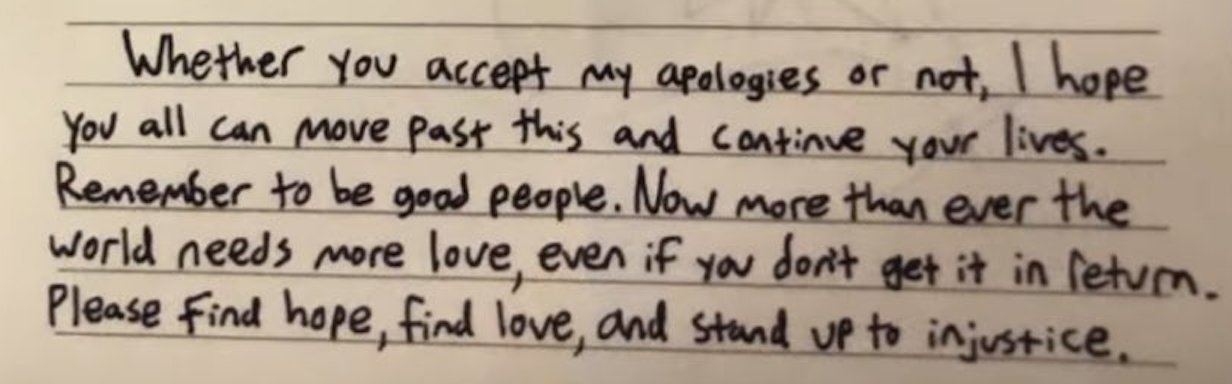 Whether you accept my apologies or not, I hope
you all can move past this and continue your lives.
Remember to be good people. Now more than ever the
world needs more love, even if you don't get it in return.
Please find hope, find love, and stand up to injustice.